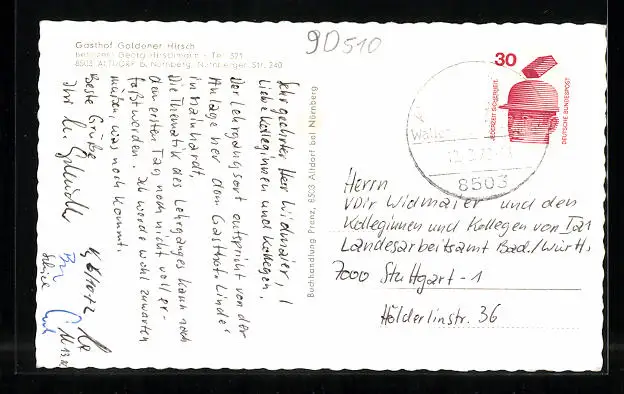 Gasthof Goldener Hirsch
Besitzer: Georg Hirschmann - Tel. 571
8503 ALTDORF b. Nürnberg, Nürnberger Str. 240
9D510
Sehr geehrter Herr Widmaier,
liebe Kolleginnen und Kollegen,
der Lehrgangsort entspricht von der
Anlage her dem Gasthaus Linde
in Mainhardt.
Die Thematik des Lehrganges kann nach
dem ersten Tag noch nicht voll er-
faßt werden. Ich werde wohl zuwarten
müssen, was noch kommt.
Beste Grüße
Ihr
Buchhandlung Franz, 8503 Altdorf bei Nürnberg
30
JEDERZEIT SICHERHEIT
DEUTSCHE BUNDESPOST
8503
Herrn
VDir Widmaier und den
Kolleginnen und Kollegen von Ia1
Landesarbeitsamt Bad./Württ.
7000 Stuttgart-1
Hölderlinstr. 36